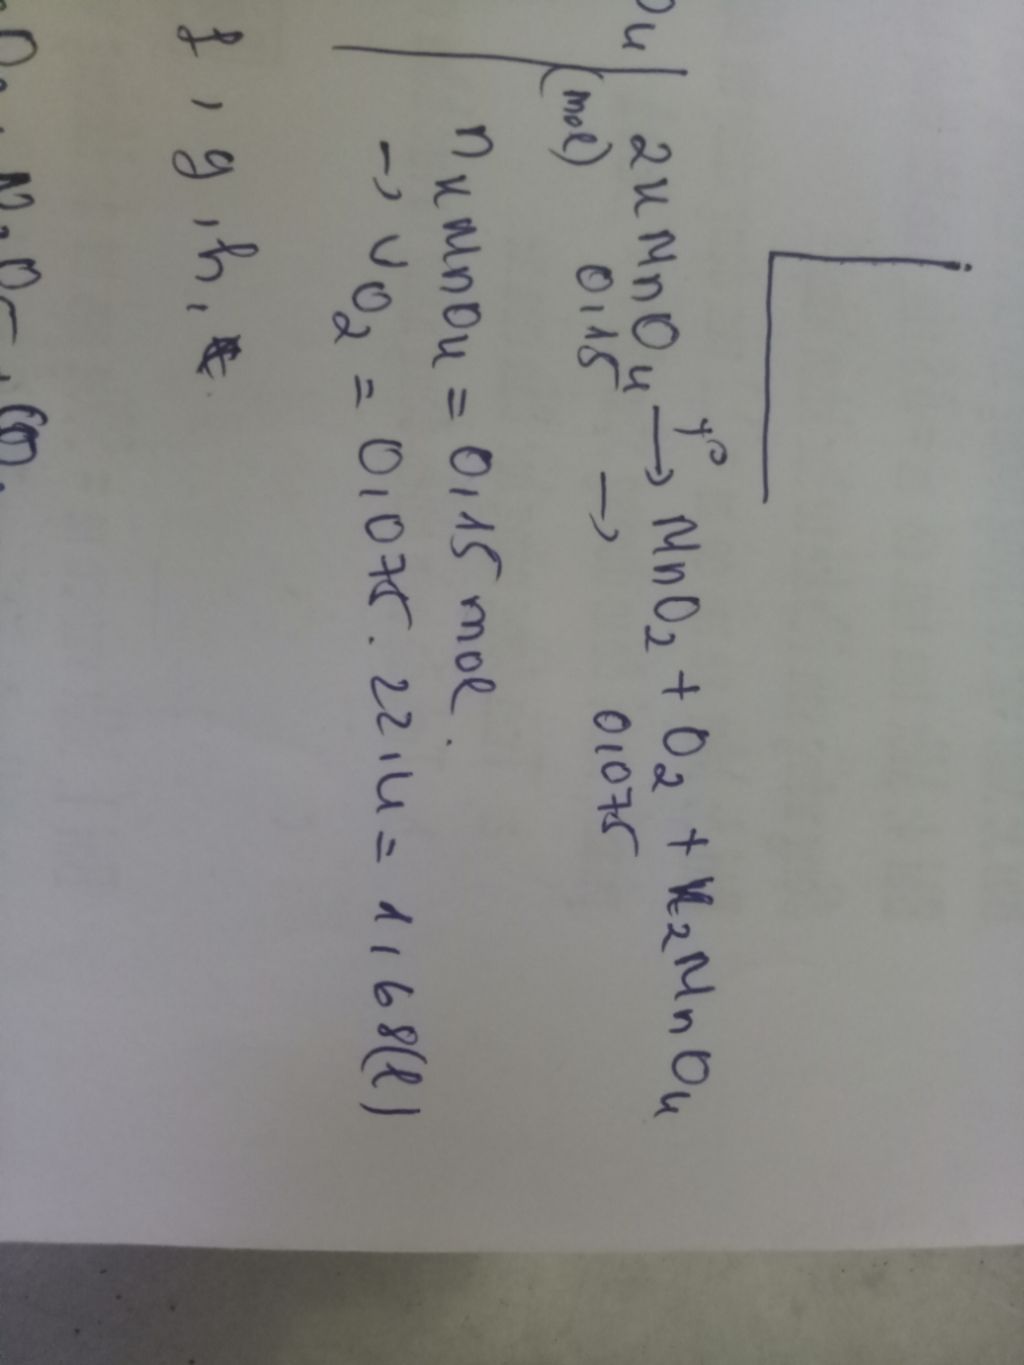 2KMnO4 t° → MnO2 + O2 + K2MnO4
(mol) 0,15 → 0,075
nKMnO4 = 0,15 mol.
→ VO2 = 0,075 . 22,4 = 1,68 (l)
f, g, h,